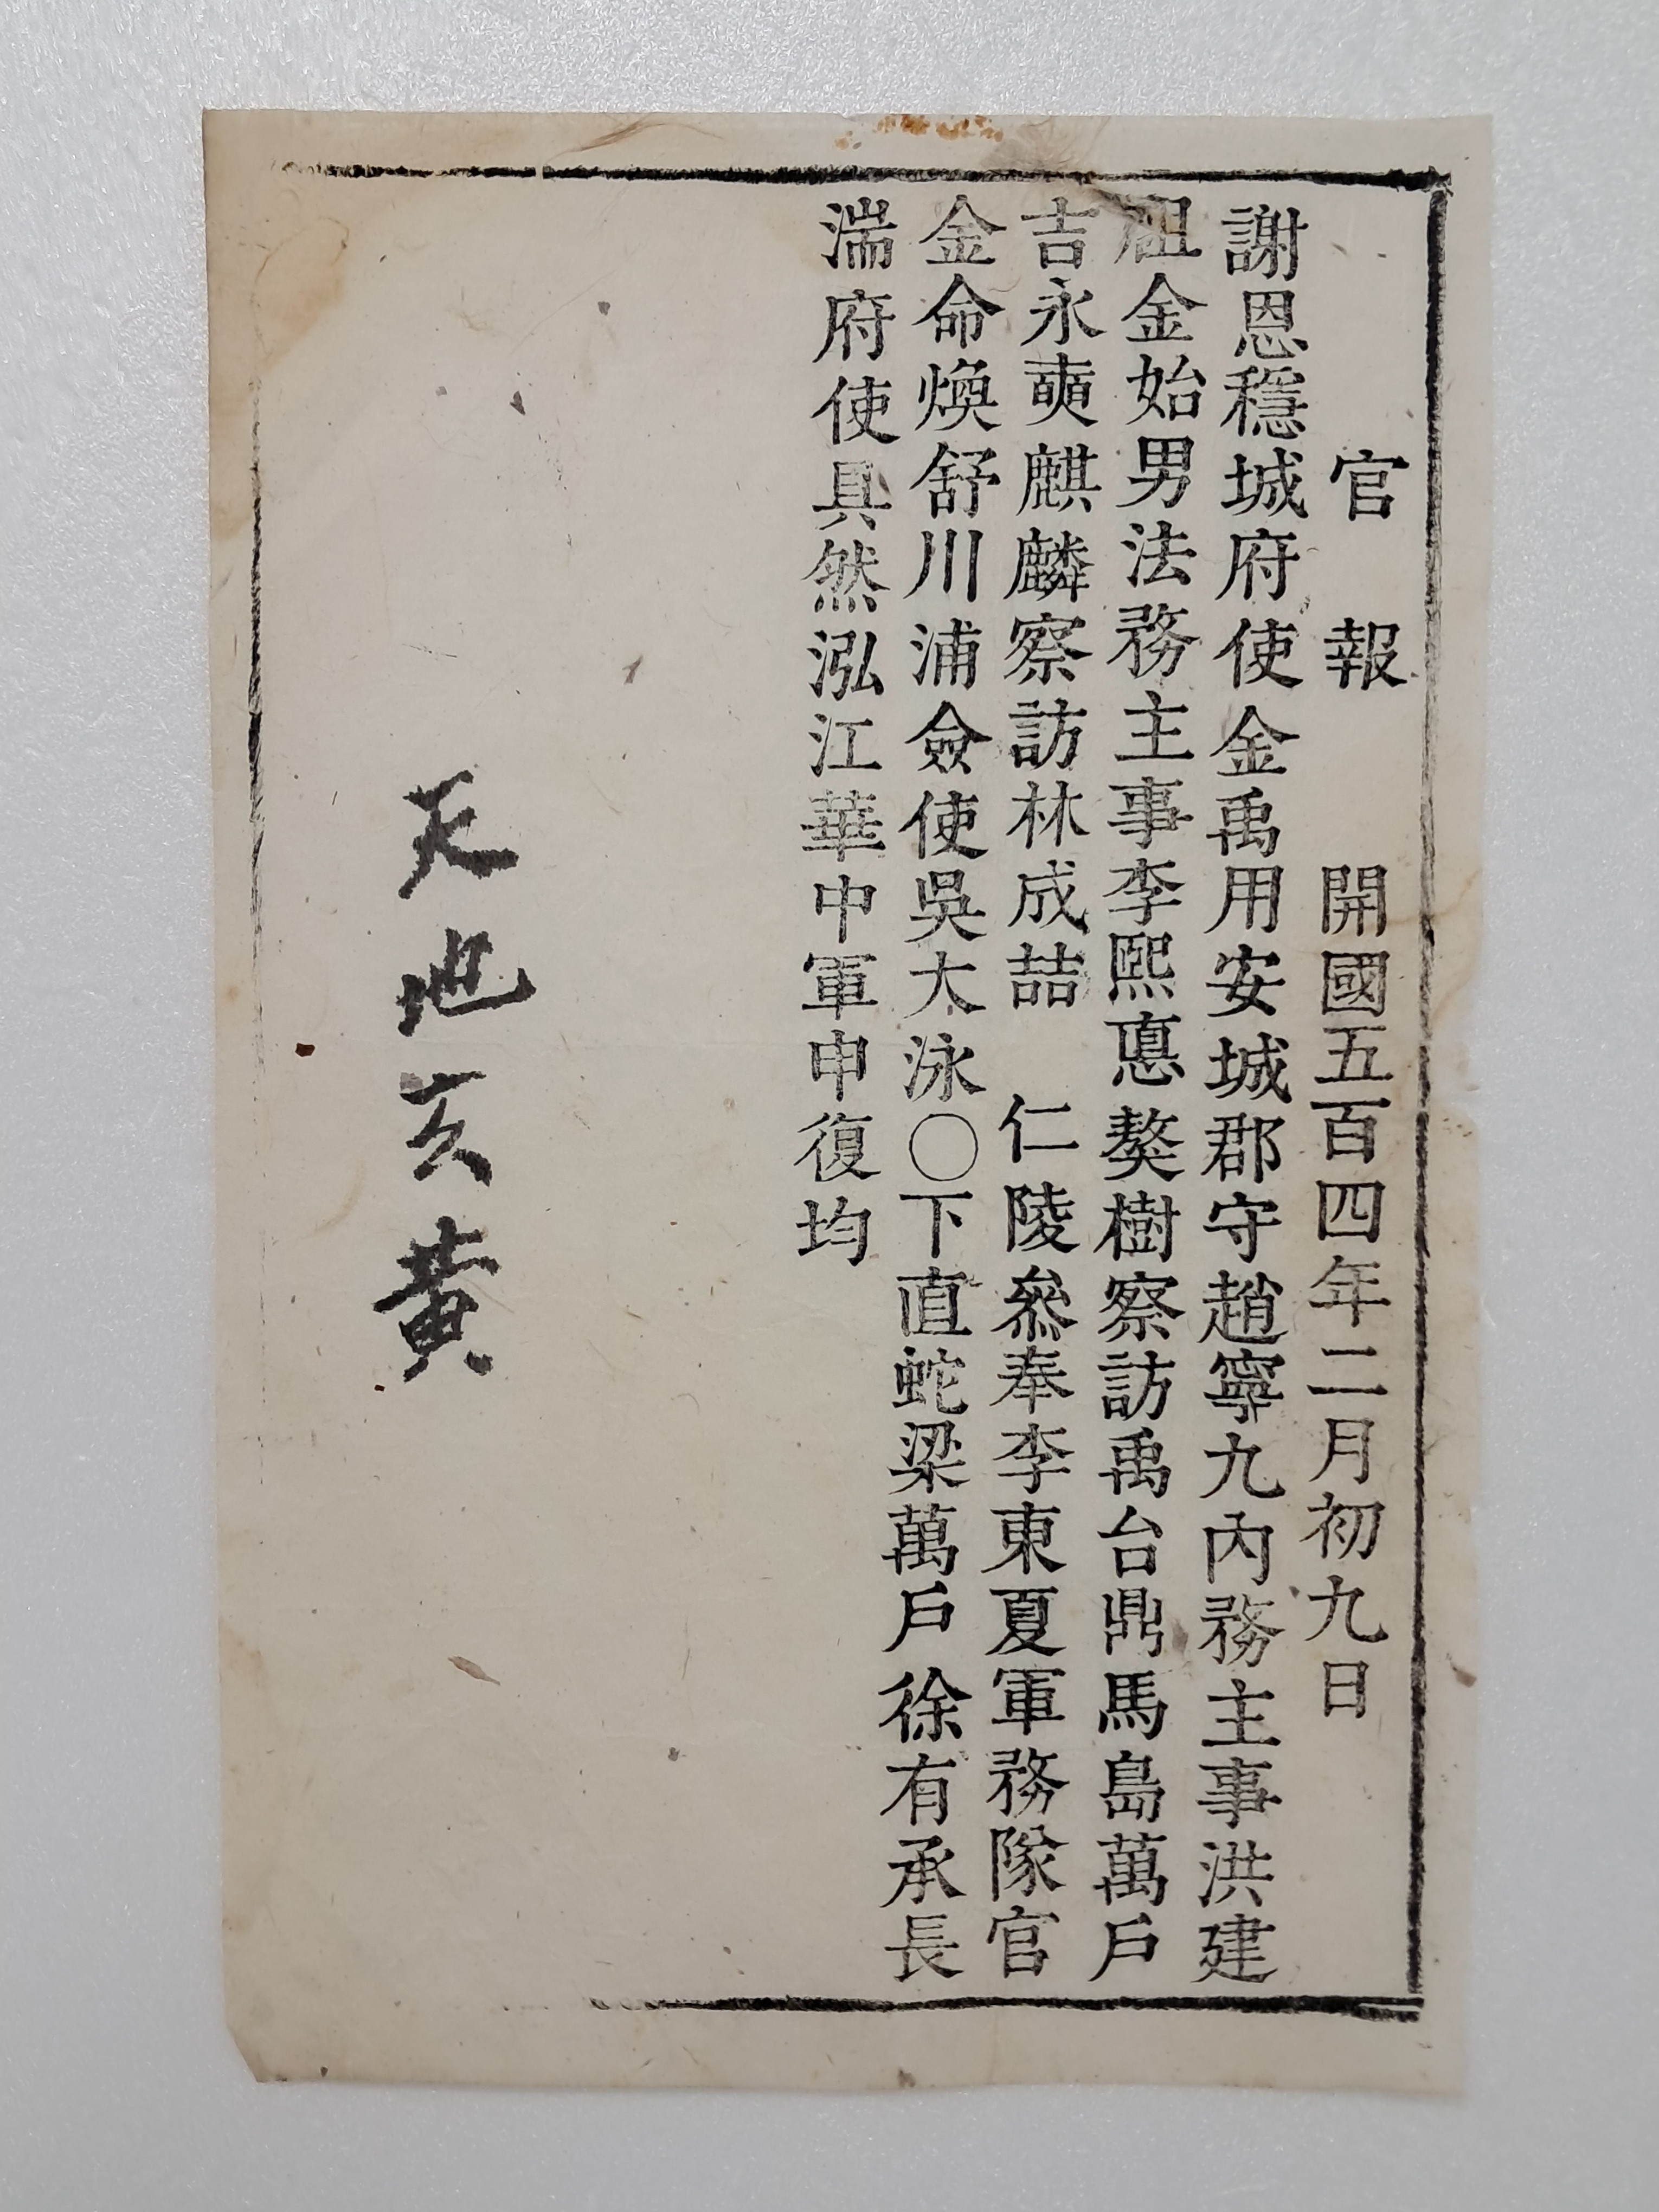 官報 開國五百四年二月初九日
謝恩穩城府使金禹用安城郡守趙寧九內務主事洪建
祖金始男法務主事李熙悳獒樹察訪禹台鼎馬島萬戶
吉永奭麒麟察訪林成喆 仁陵叅奉李東夏軍務隊官
金命煥舒川浦僉使吳大泳〇下直蛇梁萬戶徐有承長
湍府使具然泓江華中軍申復均
天地玄黃